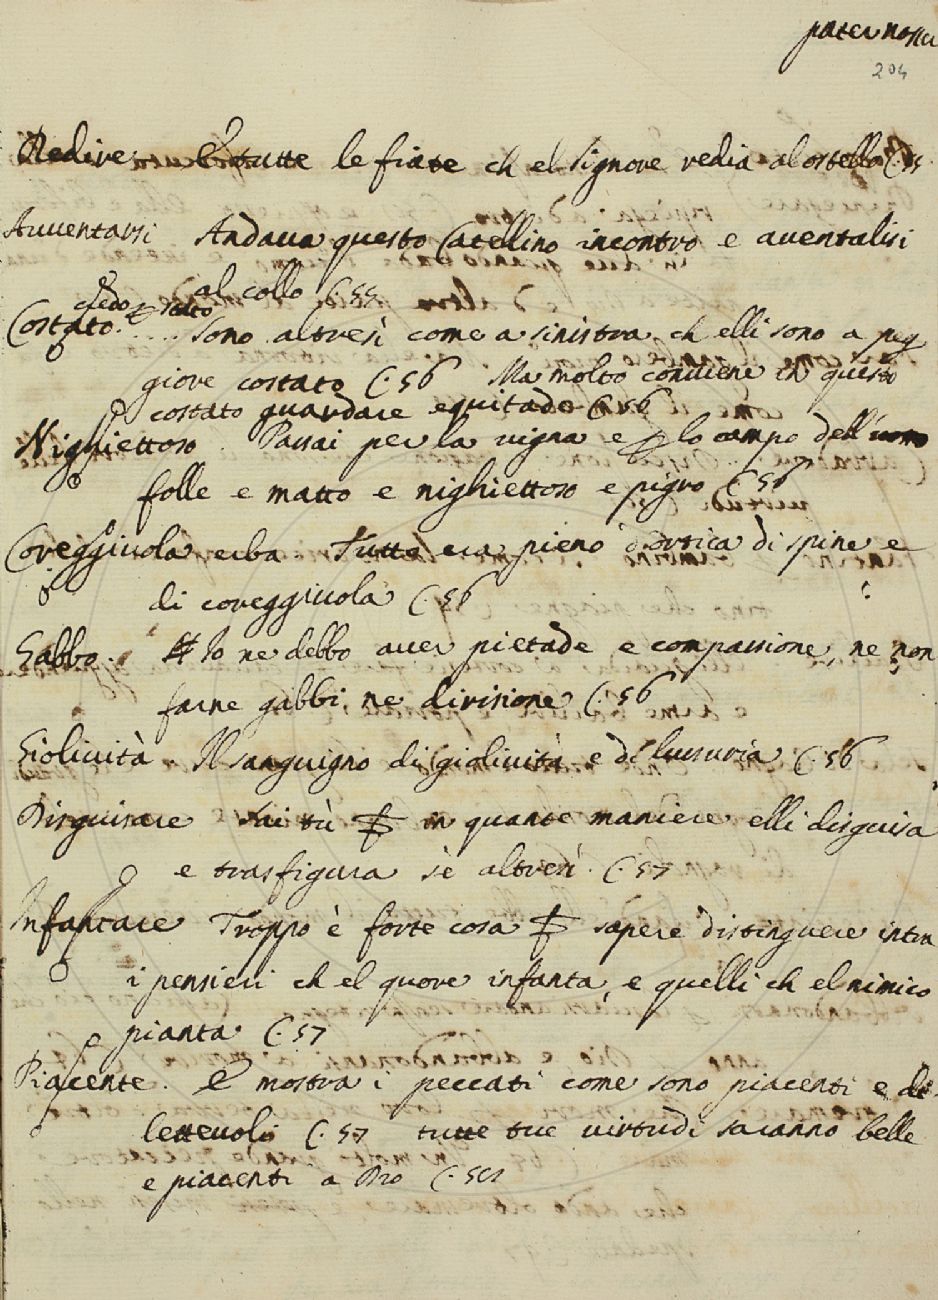 pater noster
204
Redire. E tutte le fiate ch el signore redia al ostello C. 55.
Avventarsi Andava questo Catellino incontro e aventalisi
al collo C. 55
credo
Costato. salto .... sono altresì come a sinistra, ch elli sono a pig
giore costato C. 56 Ma molto conviene in questo
costato guardare equitade C. 56
Nighiettoso. Passai per la vigna e p lo campo dell'uomo
folle e matto e nighiettoso e pigro C. 56
Coreggiuola erba Tutto era pieno d'ortica di spine e
di coreggiuola C. 56
Gabbo. Io ne debbo aver pietade e compassione, ne non
farne gabbi, ne divisione C. 56
Giolività. Il sanguigno di giolività e di lussuria C. 56
Disguisare Sai tù in quante maniere elli disguisa
e trasfigura sè altresì. C. 57
Infantare Troppo è forte cosa sapere distinguere intra
i pensieri ch el quore infanta, e quelli ch el nimico
pianta C. 57
Piacente. E mostra i peccati come sono piacenti e di
lettevoli C. 57 tutte tue virtudi saranno belle
e piacenti a Dio C.